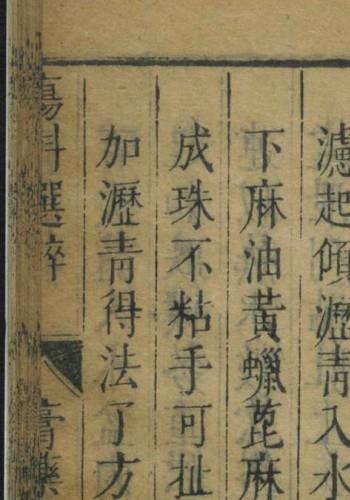 濾起傾瀝青入水
下麻油黃蠟蓖麻
成珠不粘手可扯
加瀝靑得法了方
傷科選粹
八
膏藥